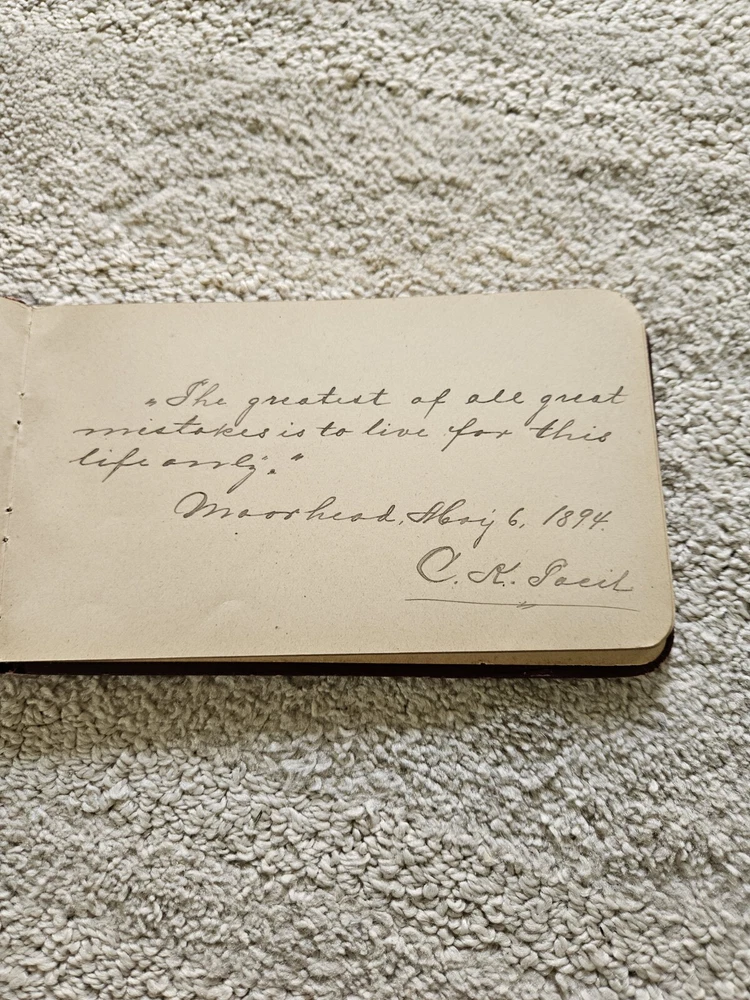 „The greatest of all great
mistakes is to live for this
life only."
Moorhead, May 6, 1894.
C. K.